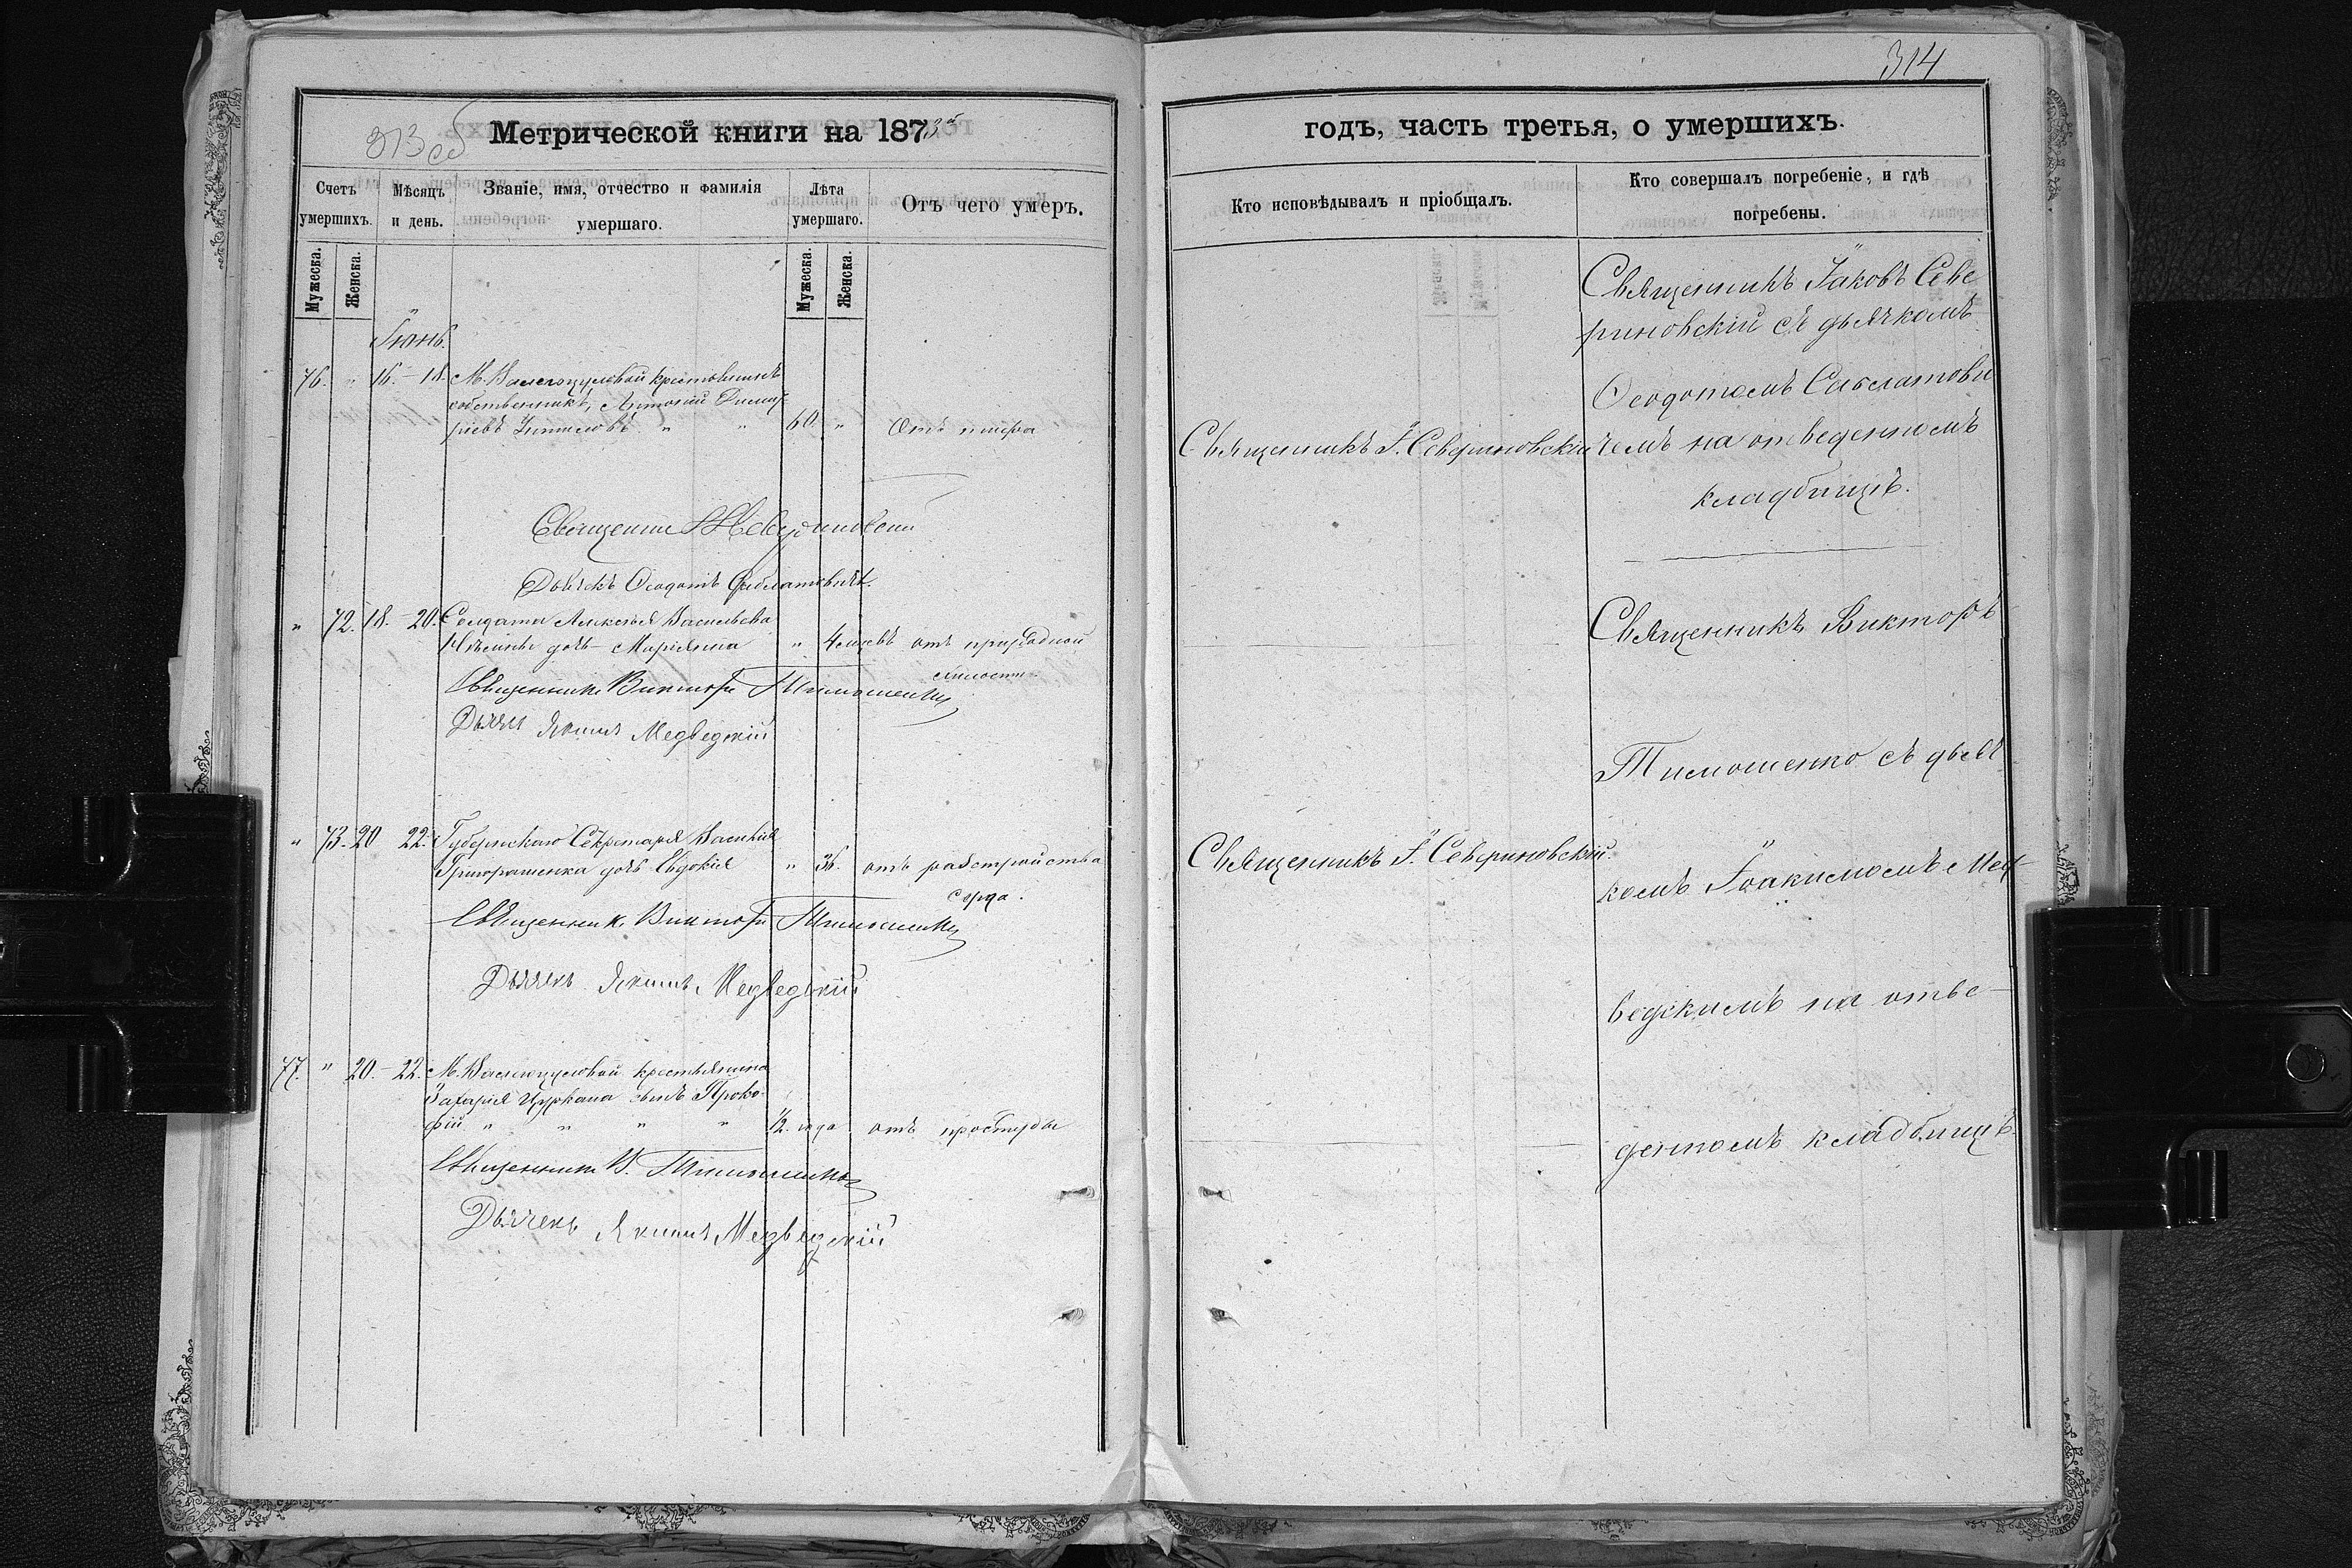 314
313 об
Метрической книги на 1873й
годъ, часть третья, о умершихъ.
Счетъ умершихъ.
Мѣсяцъ и день.
Званіе, имя, отчество и фамилія умершаго.
Лѣта умершаго.
Отъ чего умеръ.
Кто исповѣдывалъ и пріобщалъ.
Кто совершалъ погребеніе, и гдѣ погребены.
Мужеска.
Женска.
Мужеска.
Женска.
Іюнь.
76. " 16.-18. М. Валегоцуловой
собственникъ, Антоній Димит
ріевъ 60. "
Священникъ І. Севериновскій
Священникъ Іаковъ Севе
риновскій съ дьячкомъ
Ѳеодотомъ Саблатови
чемъ на отведенномъ
кладбищѣ.
Священникъ І. Севериновскій
Дьячекъ Ѳеодотъ Саблатовичъ.
" 72. 18. - 20. Солдата Алексѣя Васильева
дочь Маріянна " 4 отъ природной
слабости
Священникъ Викторъ Тимошенко
Дьячекъ Якимъ Медведскій
" 73. 20 22. Губернскаго Секретаря Василія
Григорашенка дочь Евдокія " 36. отъ разстройства
сердца.
Священникъ І. Севериновскій.
Священникъ Викторъ Тимошенко
Дьячекъ Якимъ Медведскій
77. " 20. - 22. М. Валегоцуловой крестьянина
Захарія Цуркана сынъ Проко-
фій " " " " 1/2 года отъ простуды
Священникъ В. Тимошенко
Дьячекъ Якимъ Медведскій
Священникъ Викторъ
Тимошенко съ дьяч
комъ Іоакимомъ Мед-
ведскимъ на отве-
денномъ кладбищѣ.